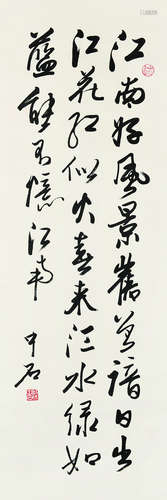 江南好風景舊曾諳日出
江花紅似火春來江水綠如
藍能不憶江南
中石